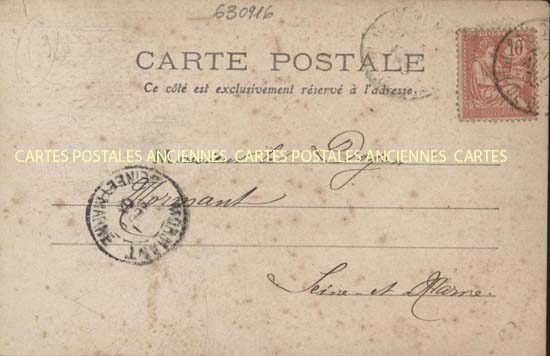 630916
CARTE POSTALE
Ce côté est exclusivement réservé à l'adresse.
10
CARTES POSTALES ANCIENNES CARTES POSTALES ANCIENNES CARTES
Mormant
MORMANT
SEINE-ET-MARNE
Seine-et-Marne.